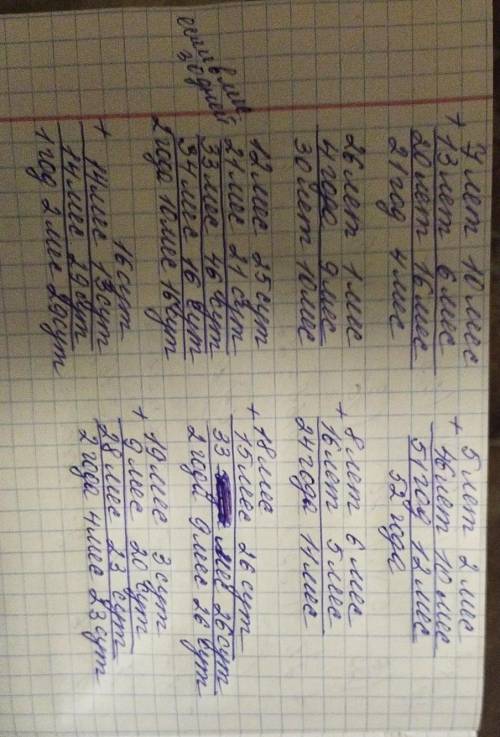 7 лет 10 мес
+ 13 лет 6 мес
20 лет 16 мес
21 год 4 мес
5 лет 2 мес
+ 46 лет 10 мес
51 год 12 мес
52 года
26 лет 1 мес
4 года 9 мес
30 лет 10 мес
8 лет 6 мес
+ 16 лет 5 мес
24 года 11 мес
если в мес
30 дней
12 мес 25 сут
21 мес 21 сут
33 мес 46 сут
34 мес 16 сут
2 года 10 мес 16 сут
18 мес
+ 15 мес 26 сут
33 мес 26 сут
2 года 9 мес 26 сут
16 сут
+ 14 мес 13 сут
14 мес 29 сут
1 год 2 мес 29 сут
19 мес 3 сут
+ 9 мес 20 сут
28 мес 23 сут
2 года 4 мес 23 сут